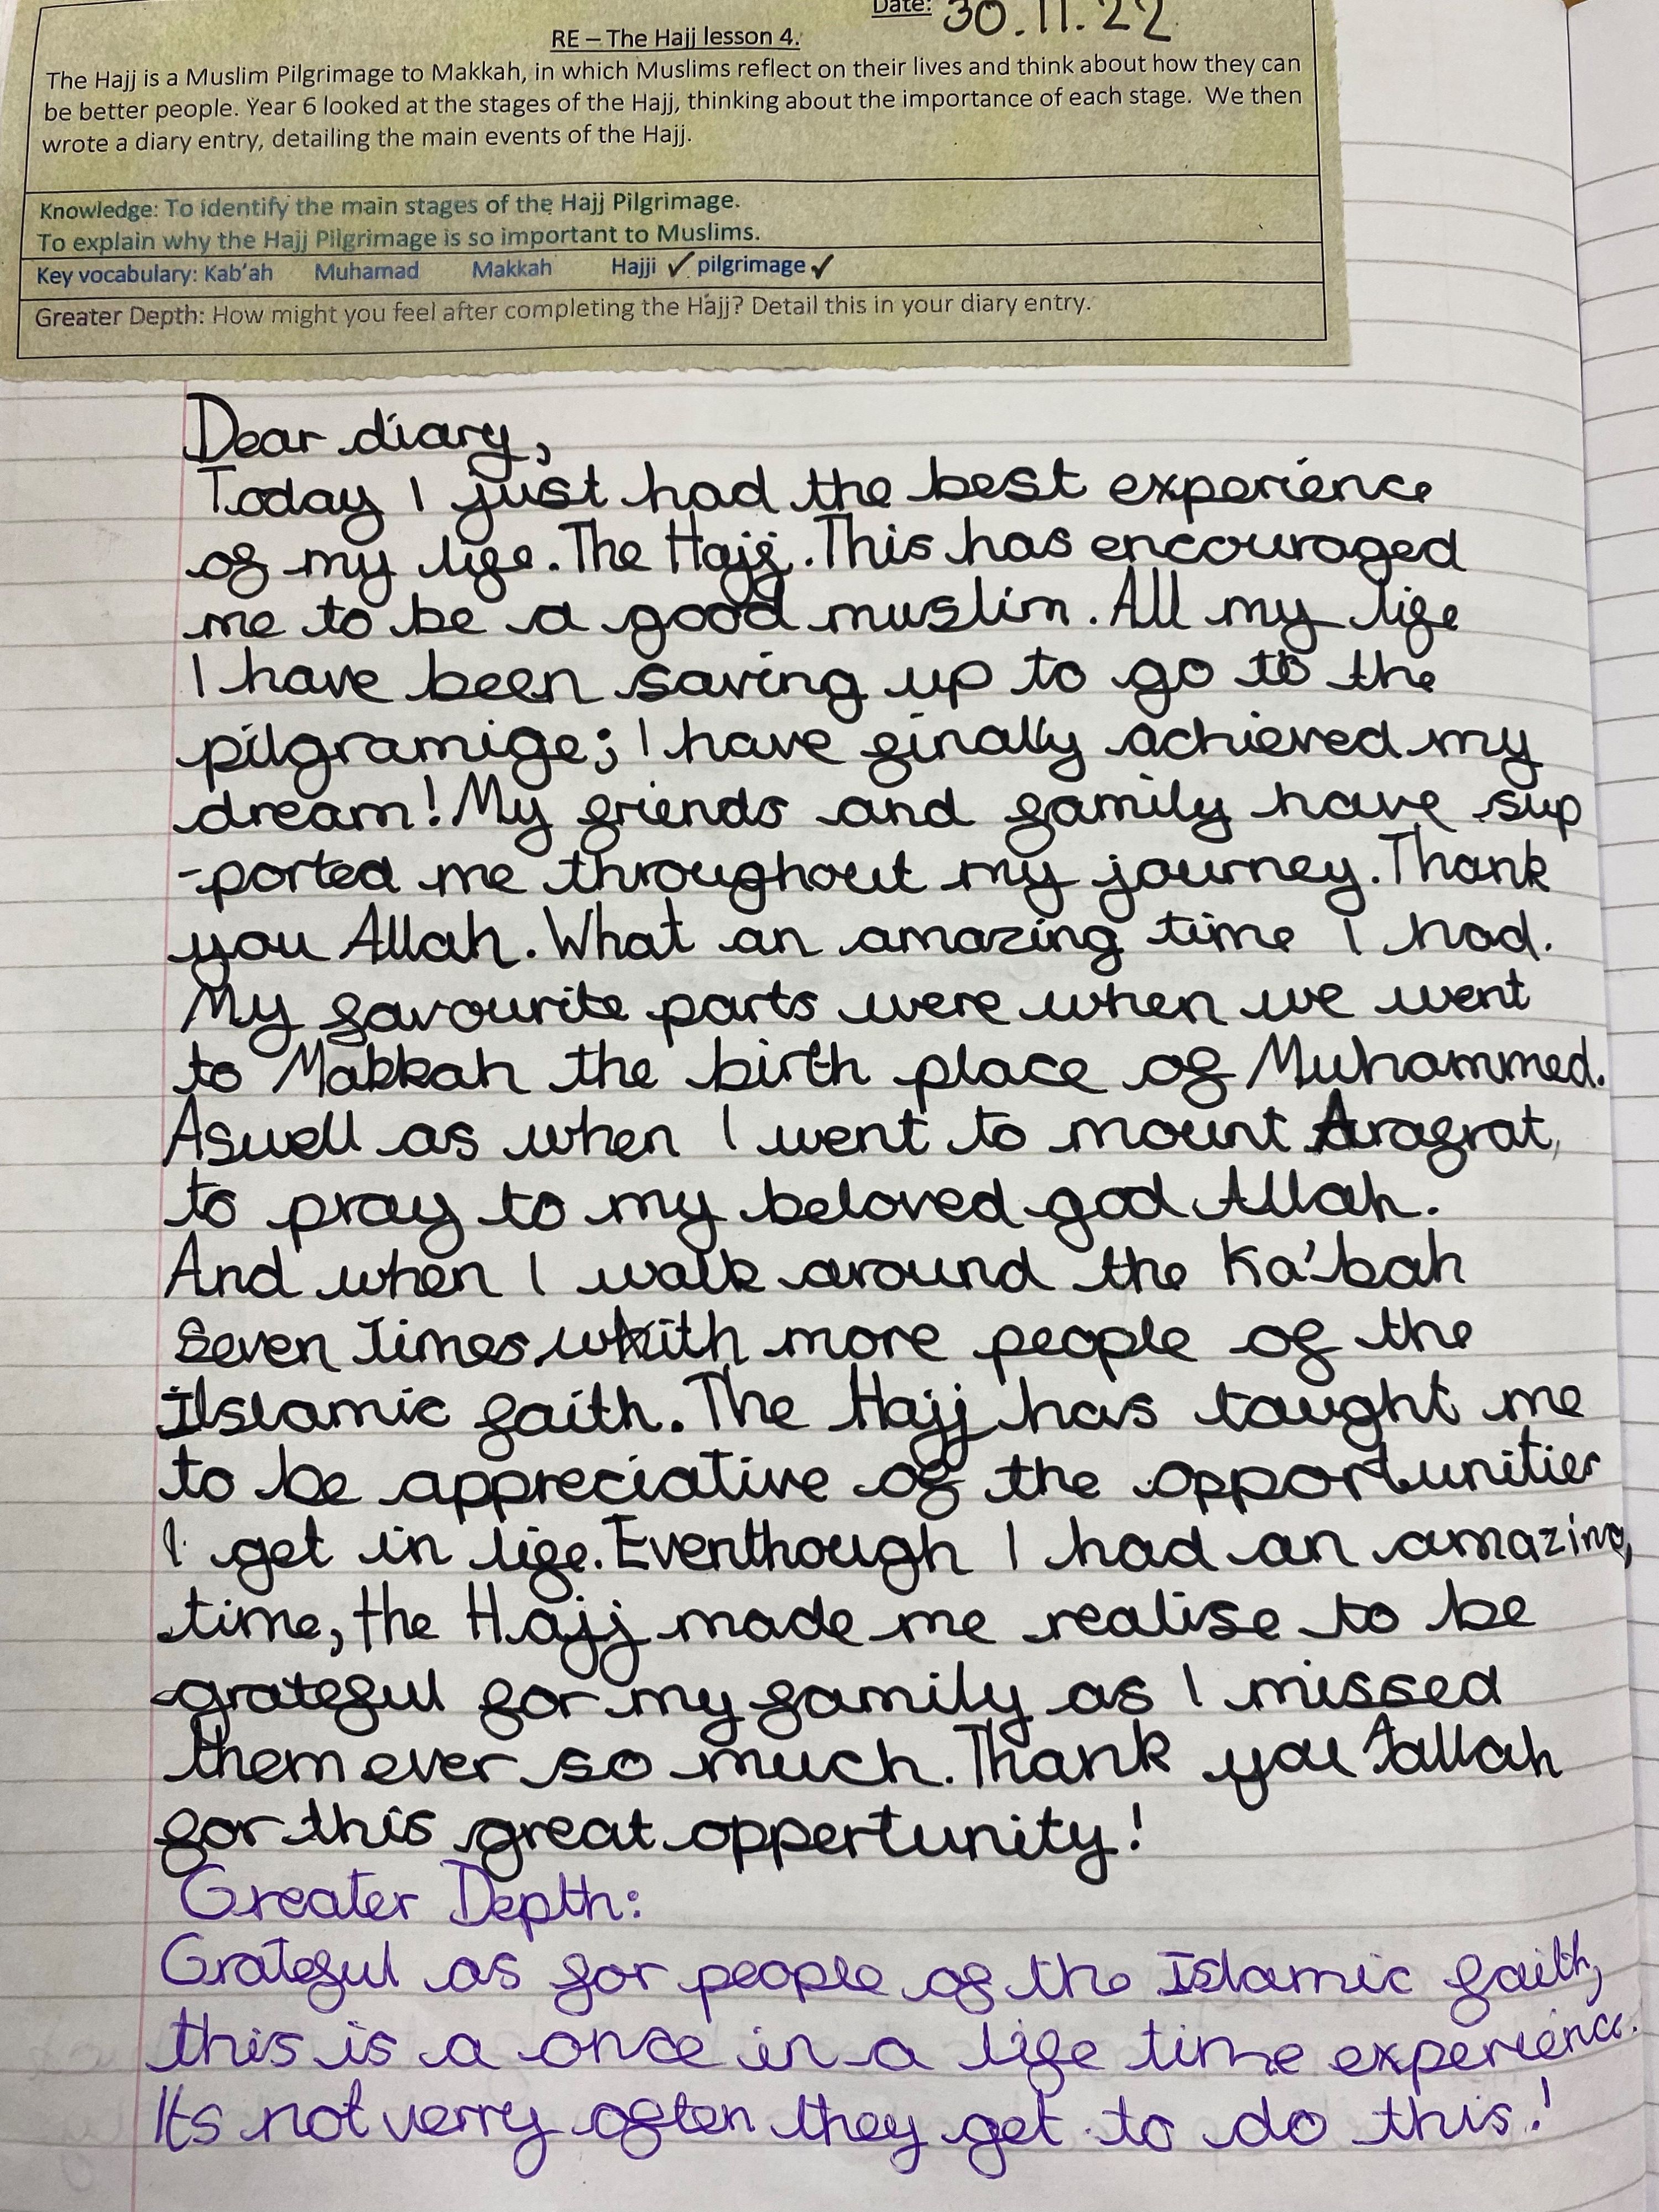 Date: 30.11.22
RE – The Hajj lesson 4.
The Hajj is a Muslim Pilgrimage to Makkah, in which Muslims reflect on their lives and think about how they can
be better people. Year 6 looked at the stages of the Hajj, thinking about the importance of each stage. We then
wrote a diary entry, detailing the main events of the Hajj.
Knowledge: To identify the main stages of the Hajj Pilgrimage.
To explain why the Hajj Pilgrimage is so important to Muslims.
Key vocabulary: Kab'ah Muhamad Makkah Hajji ✓ pilgrimage ✓
Greater Depth: How might you feel after completing the Hajj? Detail this in your diary entry.
Dear diary,
Today I just had the best experience
of my life. The Hajj. This has encouraged
me to be a good muslim. All my life
I have been saving up to go to the
pilgramige; I have finally achieved my
dream! My friends and family have sup
-ported me throughout my journey. Thank
you Allah. What an amazing time I had.
My favourite parts were when we went
to Makkah the birth place of Muhammed.
Aswell as when I went to mount Arafrat,
to pray to my beloved god Allah.
And when I walk around the Ka'bah
Seven times, with more people of the
Islamic faith. The Hajj has taught me
to be appreciative of the opportunities
I get in life. Eventhough I had an amazing
time, the Hajj made me realise to be
grateful for my family as I missed
them ever so much. Thank you Allah
for this great oppertunity!
Greater Depth:
Grateful as for people of the Islamic faith,
this is a once in a life time experience.
Its not verry often they get to do this!